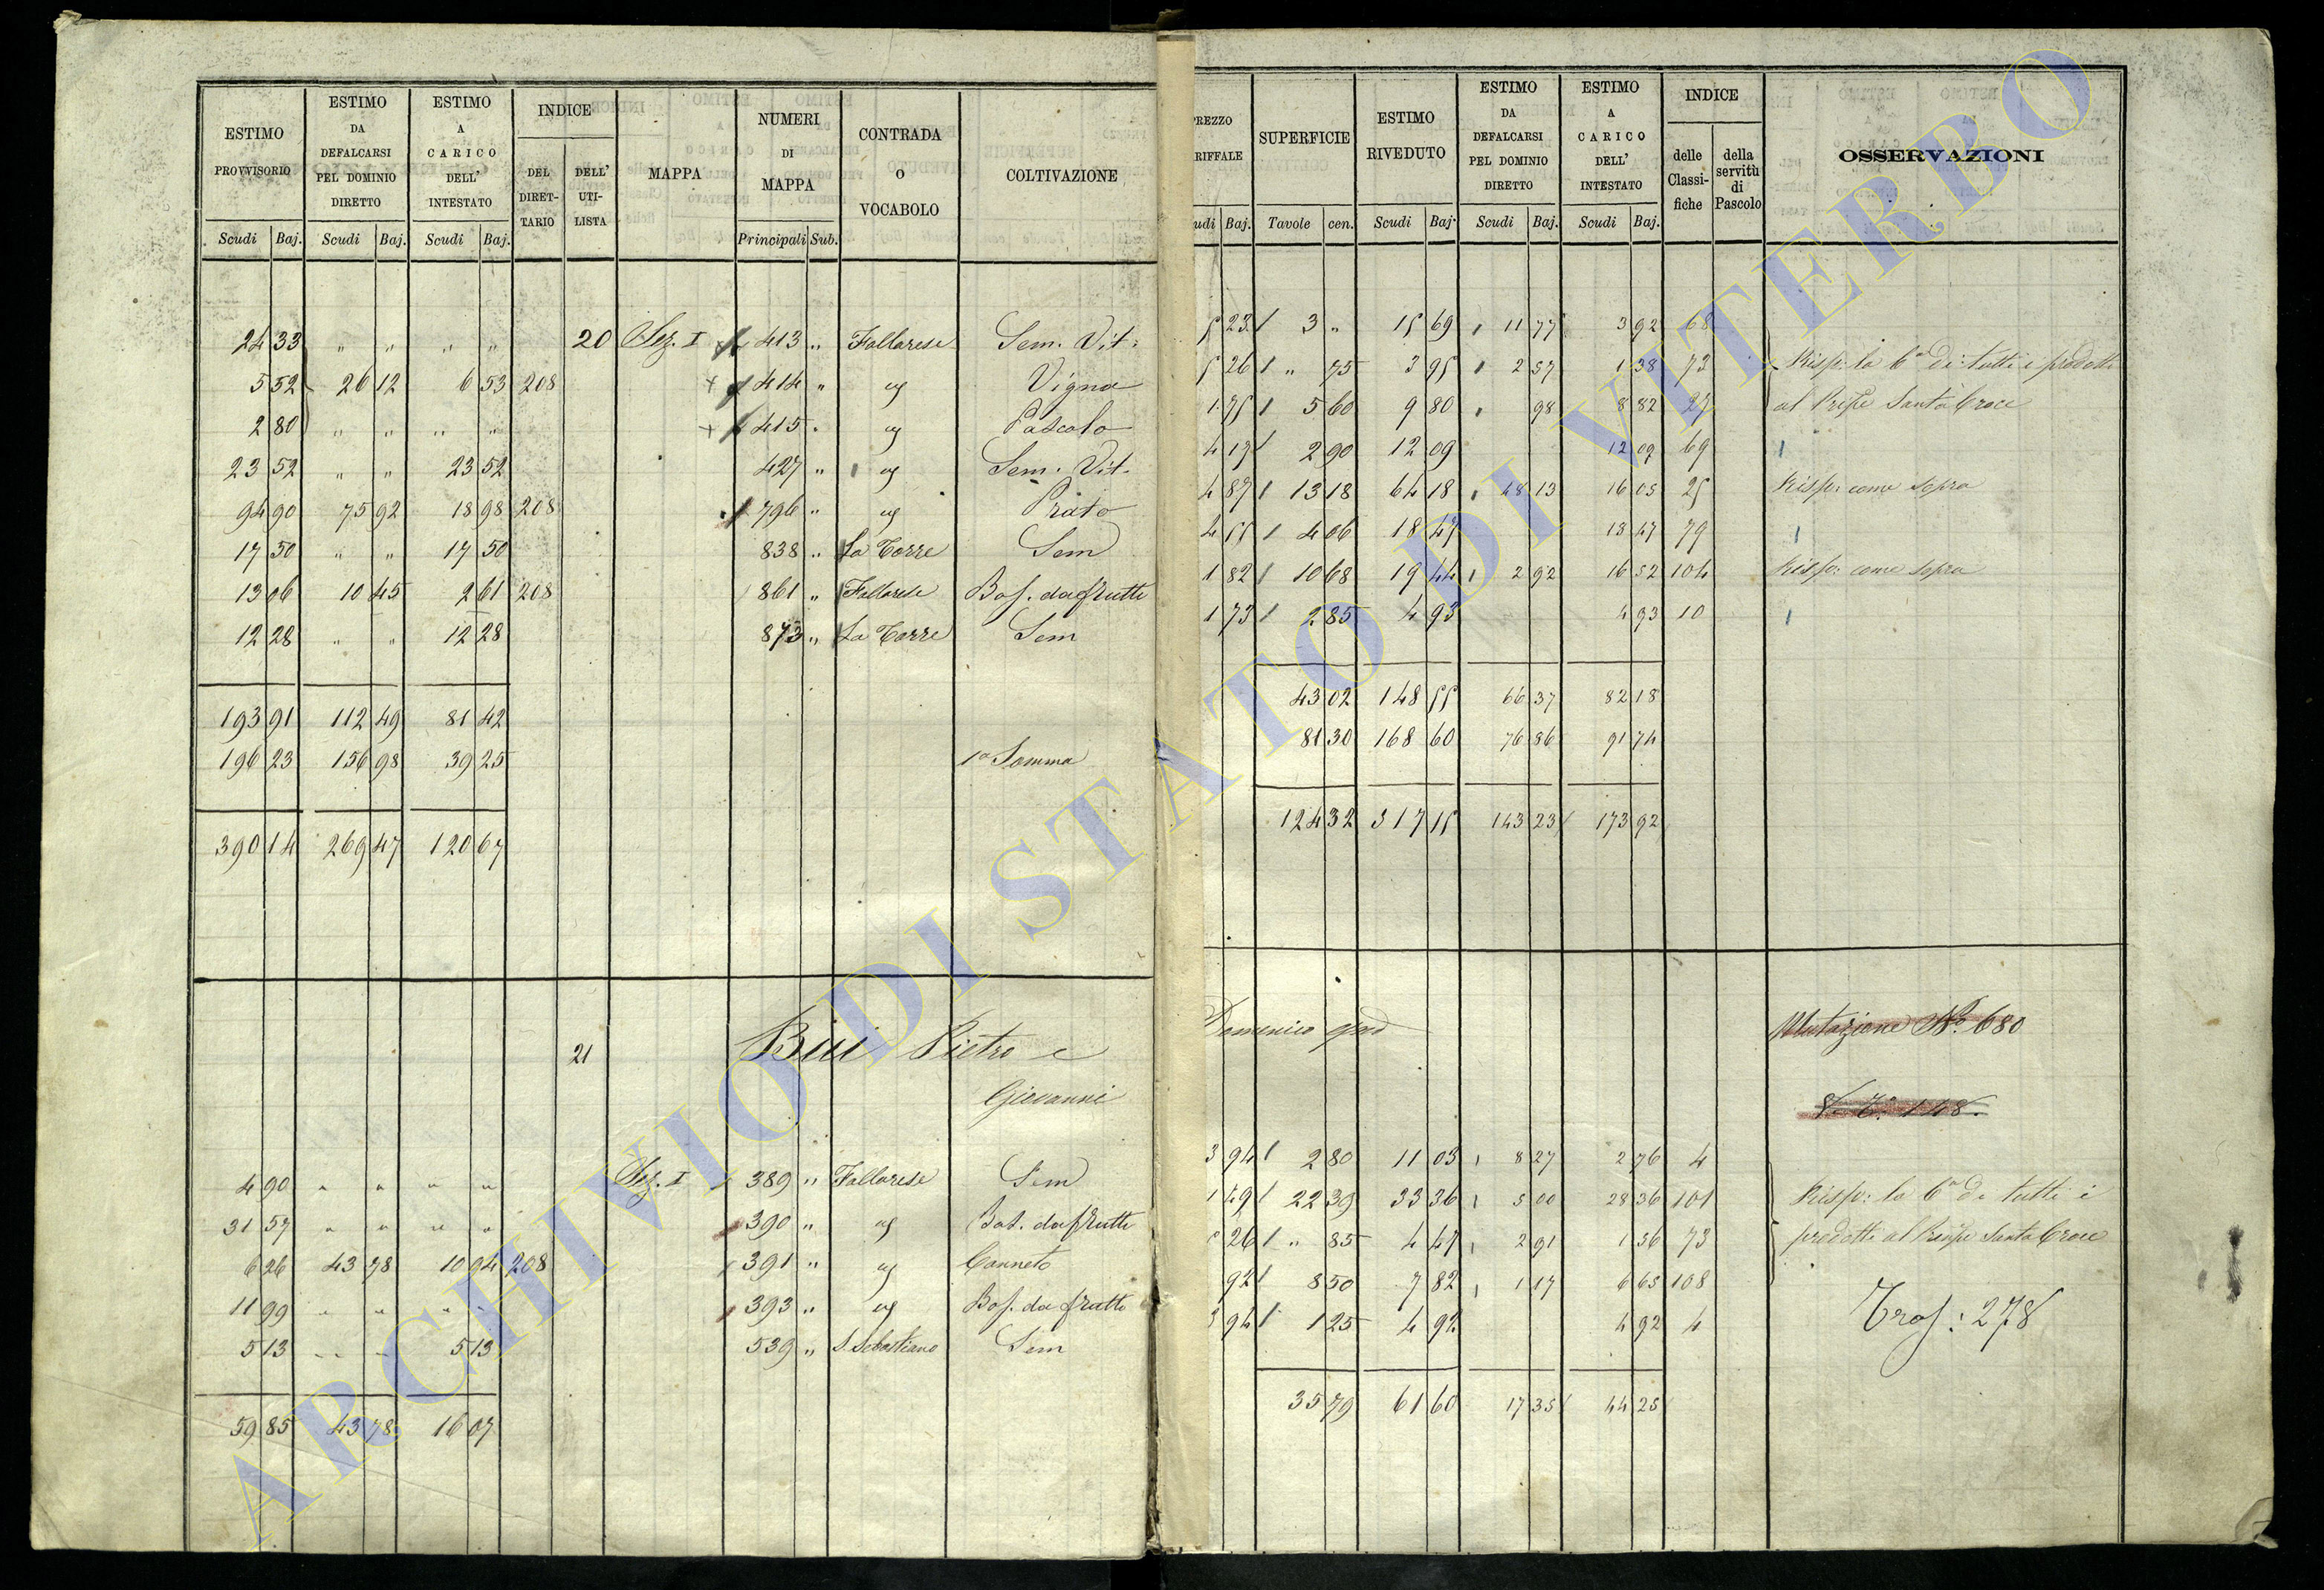 ESTIMO PROVVISORIO | ESTIMO DA DEFALCARSI PEL DOMINIO DIRETTO | ESTIMO A CARICO DELL' INTESTATO | INDICE | MAPPA | NUMERI DI MAPPA | CONTRADA O VOCABOLO | COLTIVAZIONE
DEL DIRETTARIO | DELL' UTILISTA
Scudi | Baj. | Scudi | Baj. | Scudi | Baj. | Principali | Sub.
24 33 | " " | " " | 20 | Sez. I | 413 " | Fallarese | Sem. Vit.
5 52 | 26 12 | 6 53 | 208 | 414 " | " | Vigna
2 80 | " " | " " | 415 " | " | Pascolo
23 52 | " " | 23 52 | 427 " | " | Sem. Vit.
94 90 | 75 92 | 18 98 | 208 | 796 " | " | Prato
17 50 | " " | 17 50 | 838 " | La Torre | Sem
13 06 | 10 45 | 2 61 | 208 | 861 " | Fallarese | Bos. da frutto
12 28 | " " | 12 28 | 873 " | La Torre | Sem
193 91 | 112 49 | 81 42
196 23 | 156 98 | 39 25 | 1a Somma
390 14 | 269 47 | 120 67
21 | Bui Pietro e
Giovanni
4 90 | " " | " " | Sez. I | 389 " | Fallarese | Sem
31 57 | " " | " " | 390 " | " | Bos. da frutto
6 26 | 43 78 | 10 94 | 208 | 391 " | " | Canneto
11 99 | " " | " " | 393 " | " | Bos. da frutto
5 13 | " " | 5 13 | 539 " | S. Sebastiano | Sem
59 85 | 43 78 | 16 07
PREZZO RIFFALE | SUPERFICIE | ESTIMO RIVEDUTO | ESTIMO DA DEFALCARSI PEL DOMINIO DIRETTO | ESTIMO A CARICO DELL' INTESTATO | INDICE | OSSERVAZIONI
delle Classifiche | della servitù di Pascolo
udi | Baj. | Tavole | cen. | Scudi | Baj. | Scudi | Baj. | Scudi | Baj.
5 23 | 3 " | 15 69 | 11 77 | 3 92 | 68
5 26 | " 75 | 3 95 | 2 57 | 1 38 | 73 | Risp: la 6a di tutti i prodotti
1 75 | 5 60 | 9 80 | 98 | 8 82 | 27 | al Prīpe Santa Croce
4 17 | 2 90 | 12 09 | 12 09 | 69
4 87 | 13 18 | 64 18 | 48 13 | 16 05 | 25 | Risp: come sopra
4 55 | 4 06 | 18 47 | 18 47 | 79
1 82 | 10 68 | 19 44 | 2 92 | 16 52 | 104 | Risp: come sopra
1 73 | 2 85 | 4 93 | 4 93 | 10
43 02 | 148 55 | 66 37 | 82 18
81 30 | 168 60 | 76 86 | 91 74
124 32 | 317 15 | 143 23 | 173 92
Domenico qm | Mutazione No. 680
148.
3 94 | 2 80 | 11 03 | 8 27 | 2 76 | 4
1 49 | 22 39 | 33 36 | 5 00 | 28 36 | 101 | Risp: la 6a di tutti i
5 26 | " 85 | 4 47 | 2 91 | 1 56 | 73 | prodotti al Prīpe Santa Croce
92 | 8 50 | 7 82 | 1 17 | 6 65 | 108
3 94 | 1 25 | 4 92 | 4 92 | 4 | Tras: 278
35 79 | 61 60 | 17 35 | 44 25
ARCHIVIO DI STATO DI VITERBO